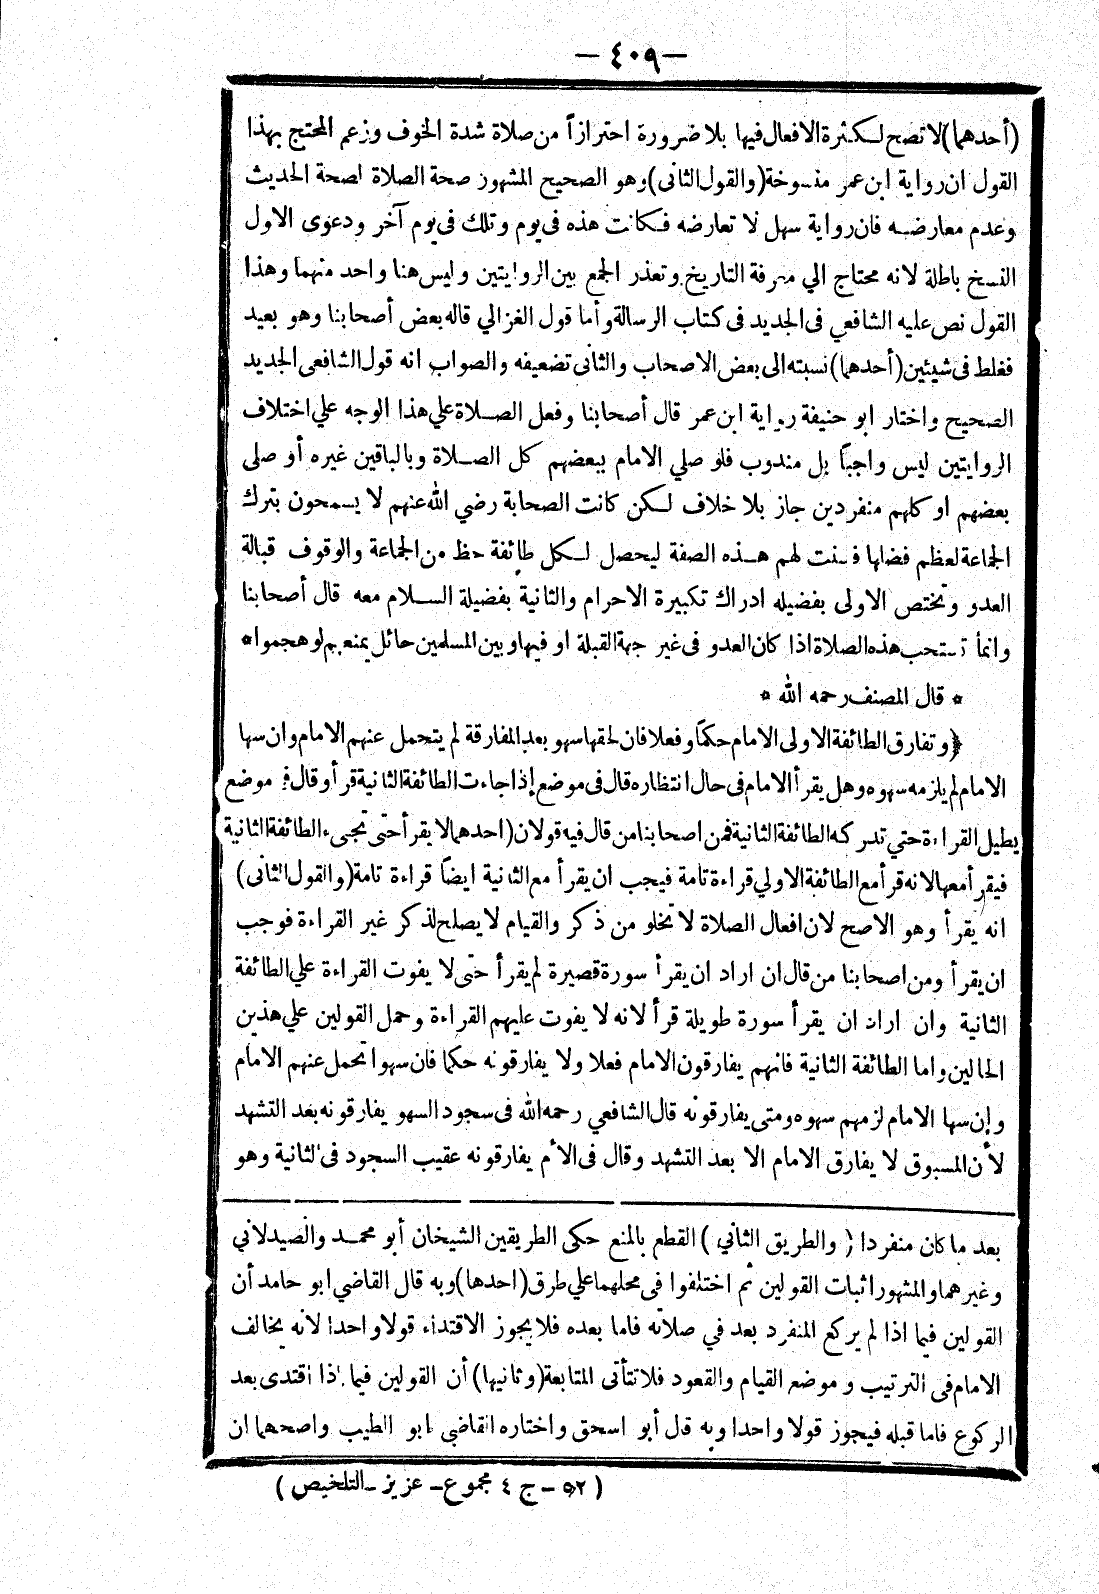 — ٤٠٩ —
(أحدهما) لا تصح لكثرة الافعال فيها بلا ضرورة احترازاً من صلاة شدة الخوف وزعم المحتج بهذا
القول ان رواية ابن عمر منسوخة (والقول الثانى) وهو الصحيح المشهور صحة الصلاة لصحة الحديث
وعدم معارضه فان رواية سهل لا تعارضه فكانت هذه فى يوم وتلك فى يوم آخر ودعوى الاول
النسخ باطلة لانه محتاج الي معرفة التاريخ وتعذر الجمع بين الروايتين وليس هنا واحد منهما وهذا
القول نص عليه الشافعي فى الجديد فى كتاب الرسالة وأما قول الغزالي قاله بعض أصحابنا وهو بعيد
فغلط فى شيئين (أحدهما) نسبته الى بعض الاصحاب والثانى تضعيفه والصواب انه قول الشافعى الجديد
الصحيح واختار ابو حنيفة رواية ابن عمر قال أصحابنا وفعل الصلاة علي هذا الوجه علي اختلاف
الروايتين ليس واجبًا بل مندوب فلو صلي الامام ببعضهم كل الصلاة وبالباقين غيره أو صلى
بعضهم او كلهم منفردين جاز بلا خلاف لكن كانت الصحابة رضي الله عنهم لا يسمحون بترك
الجماعة لعظم فضلها فسنت لهم هذه الصفة ليحصل لكل طائفة حظ من الجماعة والوقوف قبالة
العدو وتختص الاولى بفضيله ادراك تكبيرة الاحرام والثانية بفضيلة السلام معه قال أصحابنا
وانما تستحب هذه الصلاة اذا كان العدو فى غير جهة القبلة او فيها وبين المسلمين حائل يمنعهم لو هجموا *
* قال المصنف رحمه الله *
﴿وتفارق الطائفة الاولى الامام حكما وفعلا فان لحقها سهو بعد المفارقة لم يتحمل عنهم الامام وان سها
الامام لم يلزمه سهوه وهل يقرأ الامام فى حال انتظاره قال فى موضع إذا جاءت الطائفة الثانية قرأ وقال فى موضع
يطيل القراءة حتي تدركه الطائفة الثانية فمن اصحابنا من قال فيه قولان (احدهما لا يقرأ حتى تجىء الطائفة الثانية
فيقرأ معها لانه قرأ مع الطائفة الاولي قراءة تامة فيجب ان يقرأ مع الثانية ايضًا قراءة تامة (والقول الثانى)
انه يقرأ وهو الاصح لان افعال الصلاة لا تخلو من ذكر والقيام لا يصلح لذكر غير القراءة فوجب
ان يقرأ ومن اصحابنا من قال ان اراد ان يقرأ سورة قصيرة لم يقرأ حتى لا يفوت القراءة علي الطائفة
الثانية وان اراد ان يقرأ سورة طويلة قرأ لانه لا يفوت عليهم القراءة وحمل القولين علي هذين
الحالين واما الطائفة الثانية فانهم يفارقون الامام فعلا ولا يفارقونه حكما فان سهوا تحمل عنهم الامام
وإن سها الامام لزمهم سهوه ومتى يفارقونه قال الشافعي رحمه الله فى سجود السهو يفارقونه بعد التشهد
لأن المسبوق لا يفارق الامام الا بعد التشهد وقال فى الأم يفارقونه عقيب السجود فى الثانية وهو
بعد ما كان منفردا (والطريق الثاني) القطع بالمنع حكى الطريقين الشيخان أبو محمد والصيدلاني
وغيرهما والمشهور اثبات القولين ثم اختلفوا فى محلهما علي طرق (احدها) وبه قال القاضي ابو حامد أن
القولين فيما اذا لم يركع المنفرد بعد في صلاته فاما بعده فلا يجوز الاقتداء قولا واحدا لانه يخالف
الامام فى الترتيب وموضع القيام والقعود فلا تتأتى المتابعة (وثانيها) أن القولين فيما اذا اقتدى بعد
الركوع فاما قبله فيجوز قولا واحدا وبه قال أبو اسحق واختاره القاضي ابو الطيب واصحهما ان
(٥٢ – ج ٤ مجموع – عزيز – التلخيص)